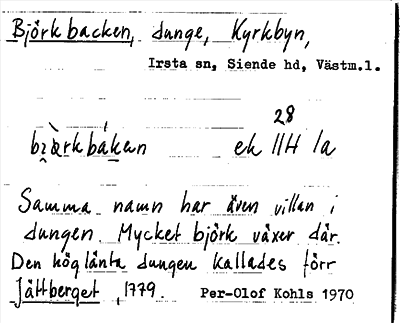 Björkbacken, dunge, Kyrkbyn,
Irsta sn, Siende hd, Västm.l.
28
ek 11H 1a
Samma namn har även villan i
dungen. Mycket björk växer där.
Den höglänta dungen kallades förr
Jättberget, 1779. Per-Olof Kohls 1970